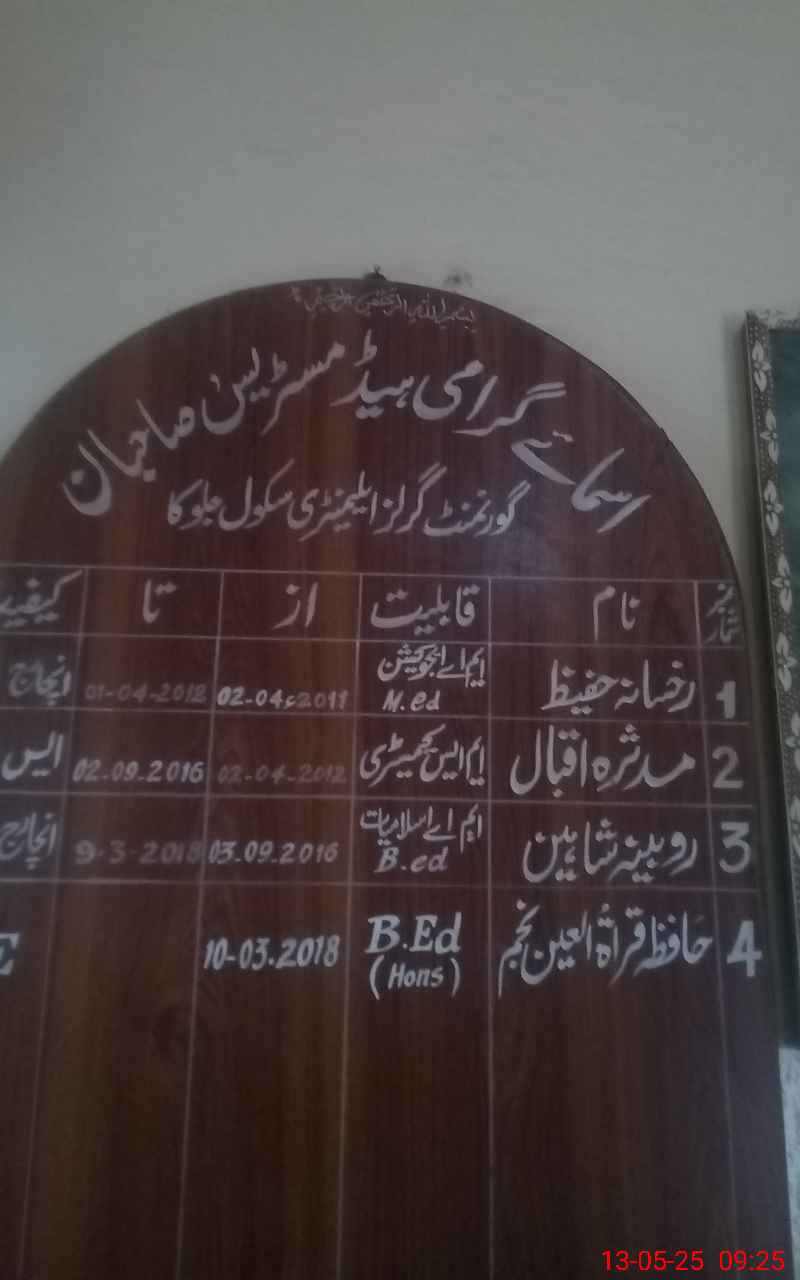 بسم اللہ الرحمن الرحیم
اسمائے گرامی ہیڈ مسٹریس صاحبان
گورنمنٹ گرلز ایلیمنٹری سکول جلوکا
نمبر شمار نام قابلیت از تا کیفیـ
1 رخسانہ حفیظ ایم اے ایجوکیشن M.ed 02-04ء2011 01-04-2012 انچارج
2 مدثرہ اقبال ایم ایس کیمیٹری 02-04-2012 02.09.2016 ایس
3 روبینہ شاہین ایم اے اسلامیات B.ed 03.09.2016 9-3-2018 انچارج
4 حافظہ قراۃ العین نجم B.Ed (Hons) 10-03.2018 E
13-05-25 09:25